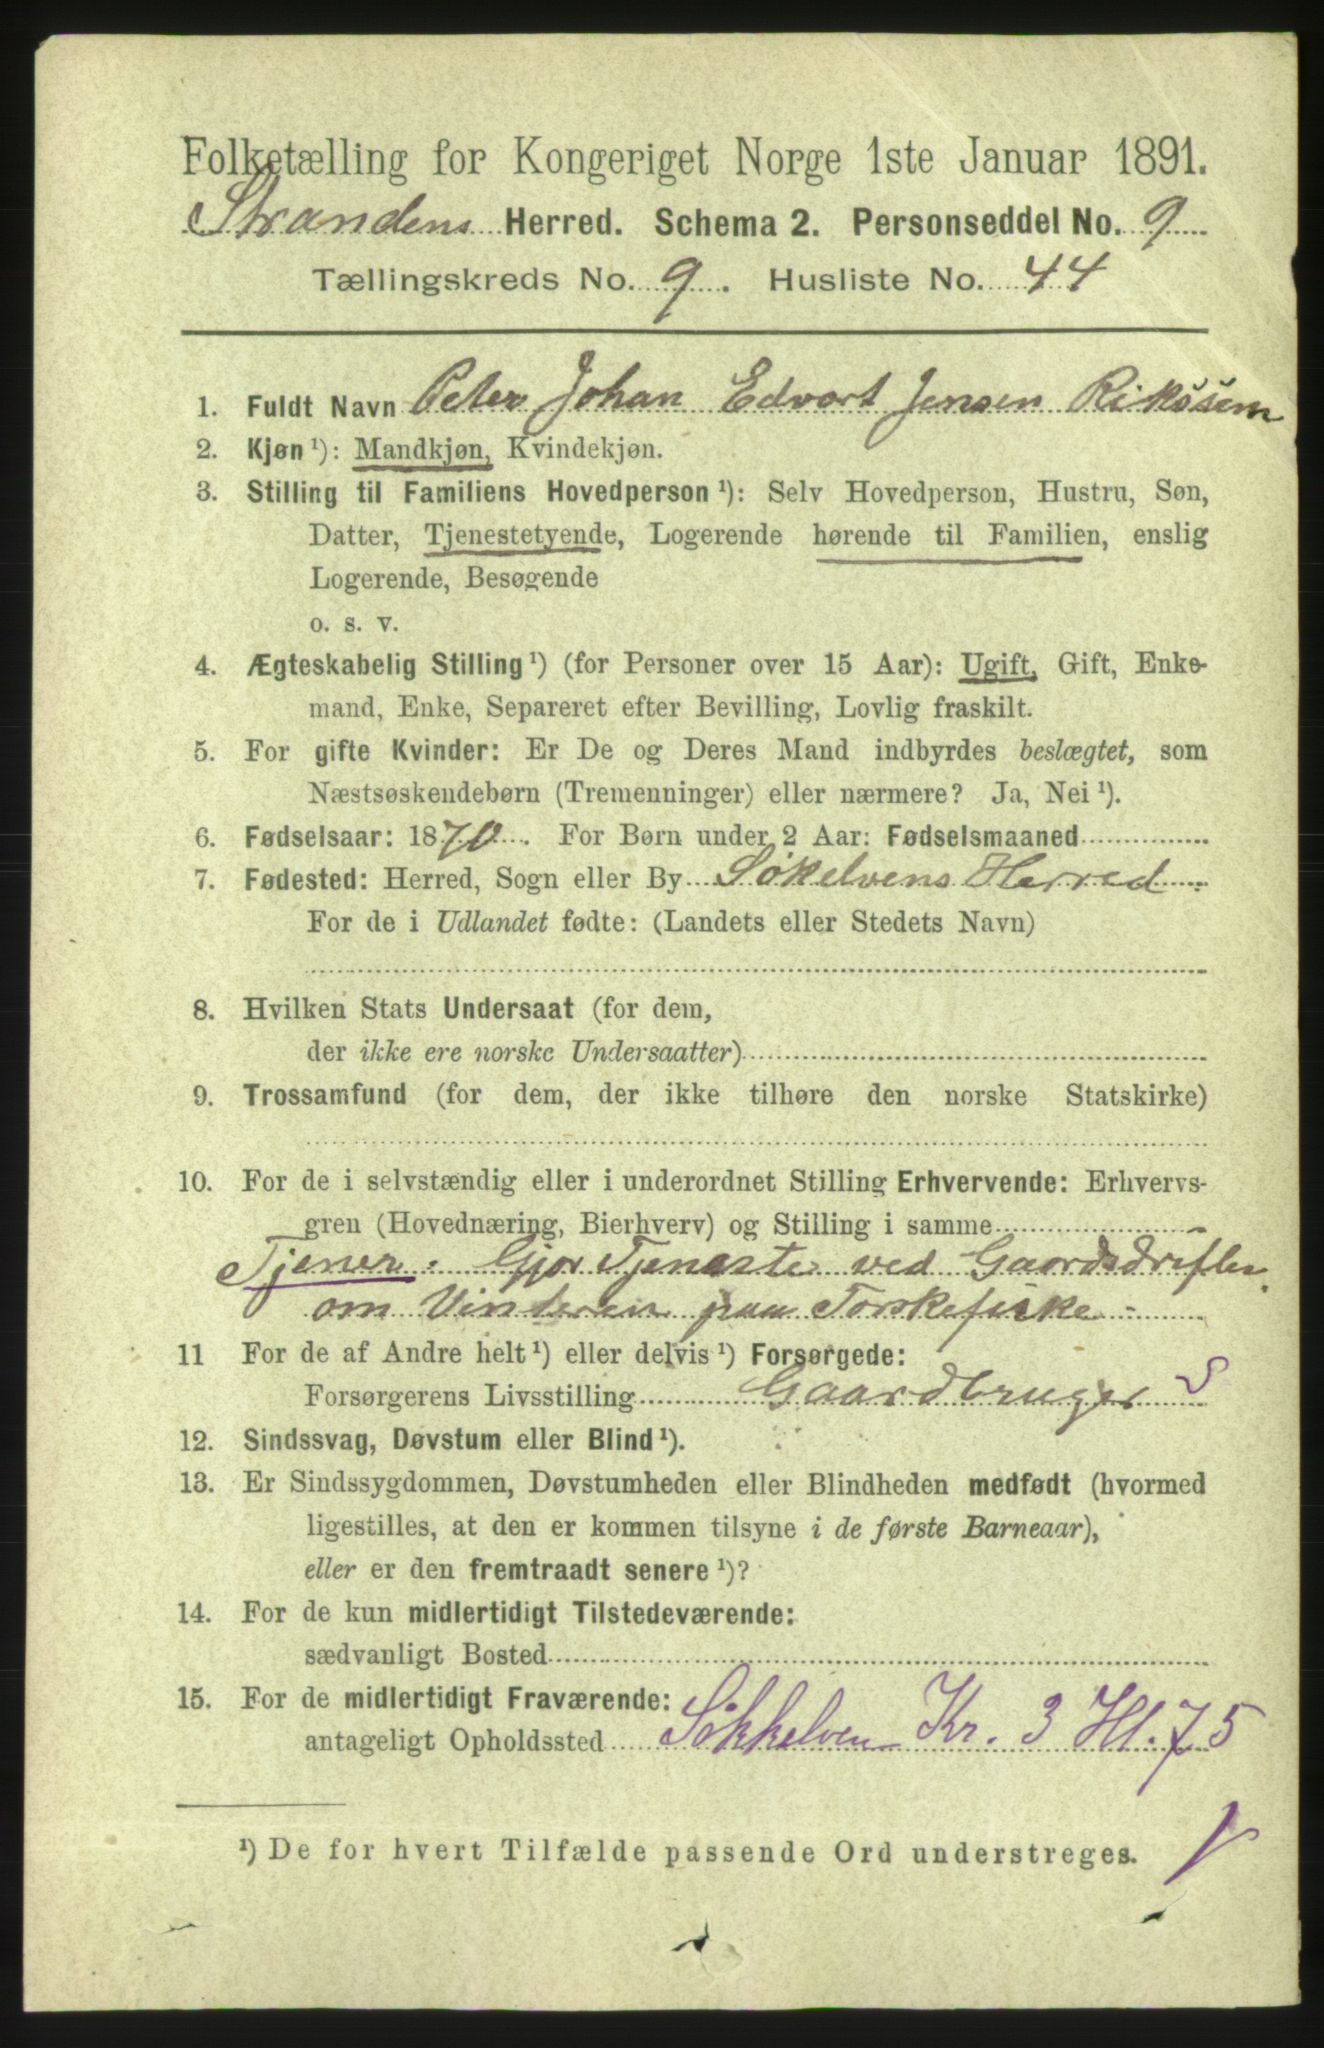 Folketælling for Kongeriget Norge 1ste Januar 1891.
Strandens Herred. Schema 2. Personseddel No. 9
Tællingskreds No. 9. Husliste No. 44
1. Fuldt Navn Peter Johan Edvart Jensen Riksem
2. Kjøn ¹): Mandkjøn, Kvindekjøn.
3. Stilling til Familiens Hovedperson ¹): Selv Hovedperson, Hustru, Søn,
Datter, Tjenestetyende, Logerende hørende til Familien, enslig
Logerende, Besøgende
o. s. v.
4. Ægteskabelig Stilling ¹) (for Personer over 15 Aar): Ugift, Gift, Enke-
mand, Enke, Separeret efter Bevilling, Lovlig fraskilt.
5. For gifte Kvinder: Er De og Deres Mand indbyrdes beslægtet, som
Næstsøskendebørn (Tremenninger) eller nærmere? Ja, Nei ¹).
6. Fødselsaar: 1870. For Børn under 2 Aar: Fødselsmaaned
7. Fødested: Herred, Sogn eller By Søkelvens Herred.
For de i Udlandet fødte: (Landets eller Stedets Navn)
8. Hvilken Stats Undersaat (for dem,
der ikke ere norske Undersaatter)
9. Trossamfund (for dem, der ikke tilhøre den norske Statskirke)
10. For de i selvstændig eller i underordnet Stilling Erhvervende: Erhvervs-
gren (Hovednæring, Bierhverv) og Stilling i samme
Tjener. Gjør Tjeneste ved Gaardsdriften
om Vinteren paa Torskefiske
11 For de af Andre helt ¹) eller delvis ¹) Forsørgede:
Forsørgerens Livsstilling Gaardbruger
12. Sindssvag, Døvstum eller Blind ¹).
13. Er Sindssygdommen, Døvstumheden eller Blindheden medfødt (hvormed
ligestilles, at den er kommen tilsyne i de første Barneaar),
eller er den fremtraadt senere ¹)?
14. For de kun midlertidigt Tilstedeværende:
sædvanligt Bosted
15. For de midlertidigt Fraværende:
antageligt Opholdssted Sökkelven Kr. 3 Hl. 75
¹) De for hvert Tilfælde passende Ord understreges.